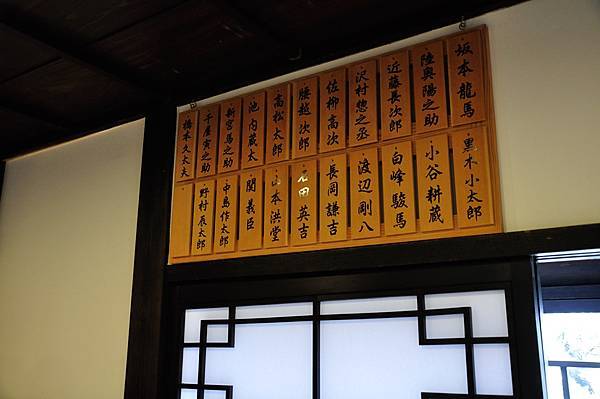 坂本龍馬
陸奥陽之助
近藤長次郎
沢村惣之丞
佐柳高次
腰越次郎
高松太郎
池内蔵太
新宮馬之助
千屋寅之助
橋本久太夫
黒木小太郎
小谷耕蔵
白峰駿馬
渡辺剛八
長岡謙吉
石田英吉
山本洪堂
関義臣
中島作太郎
野村辰太郎